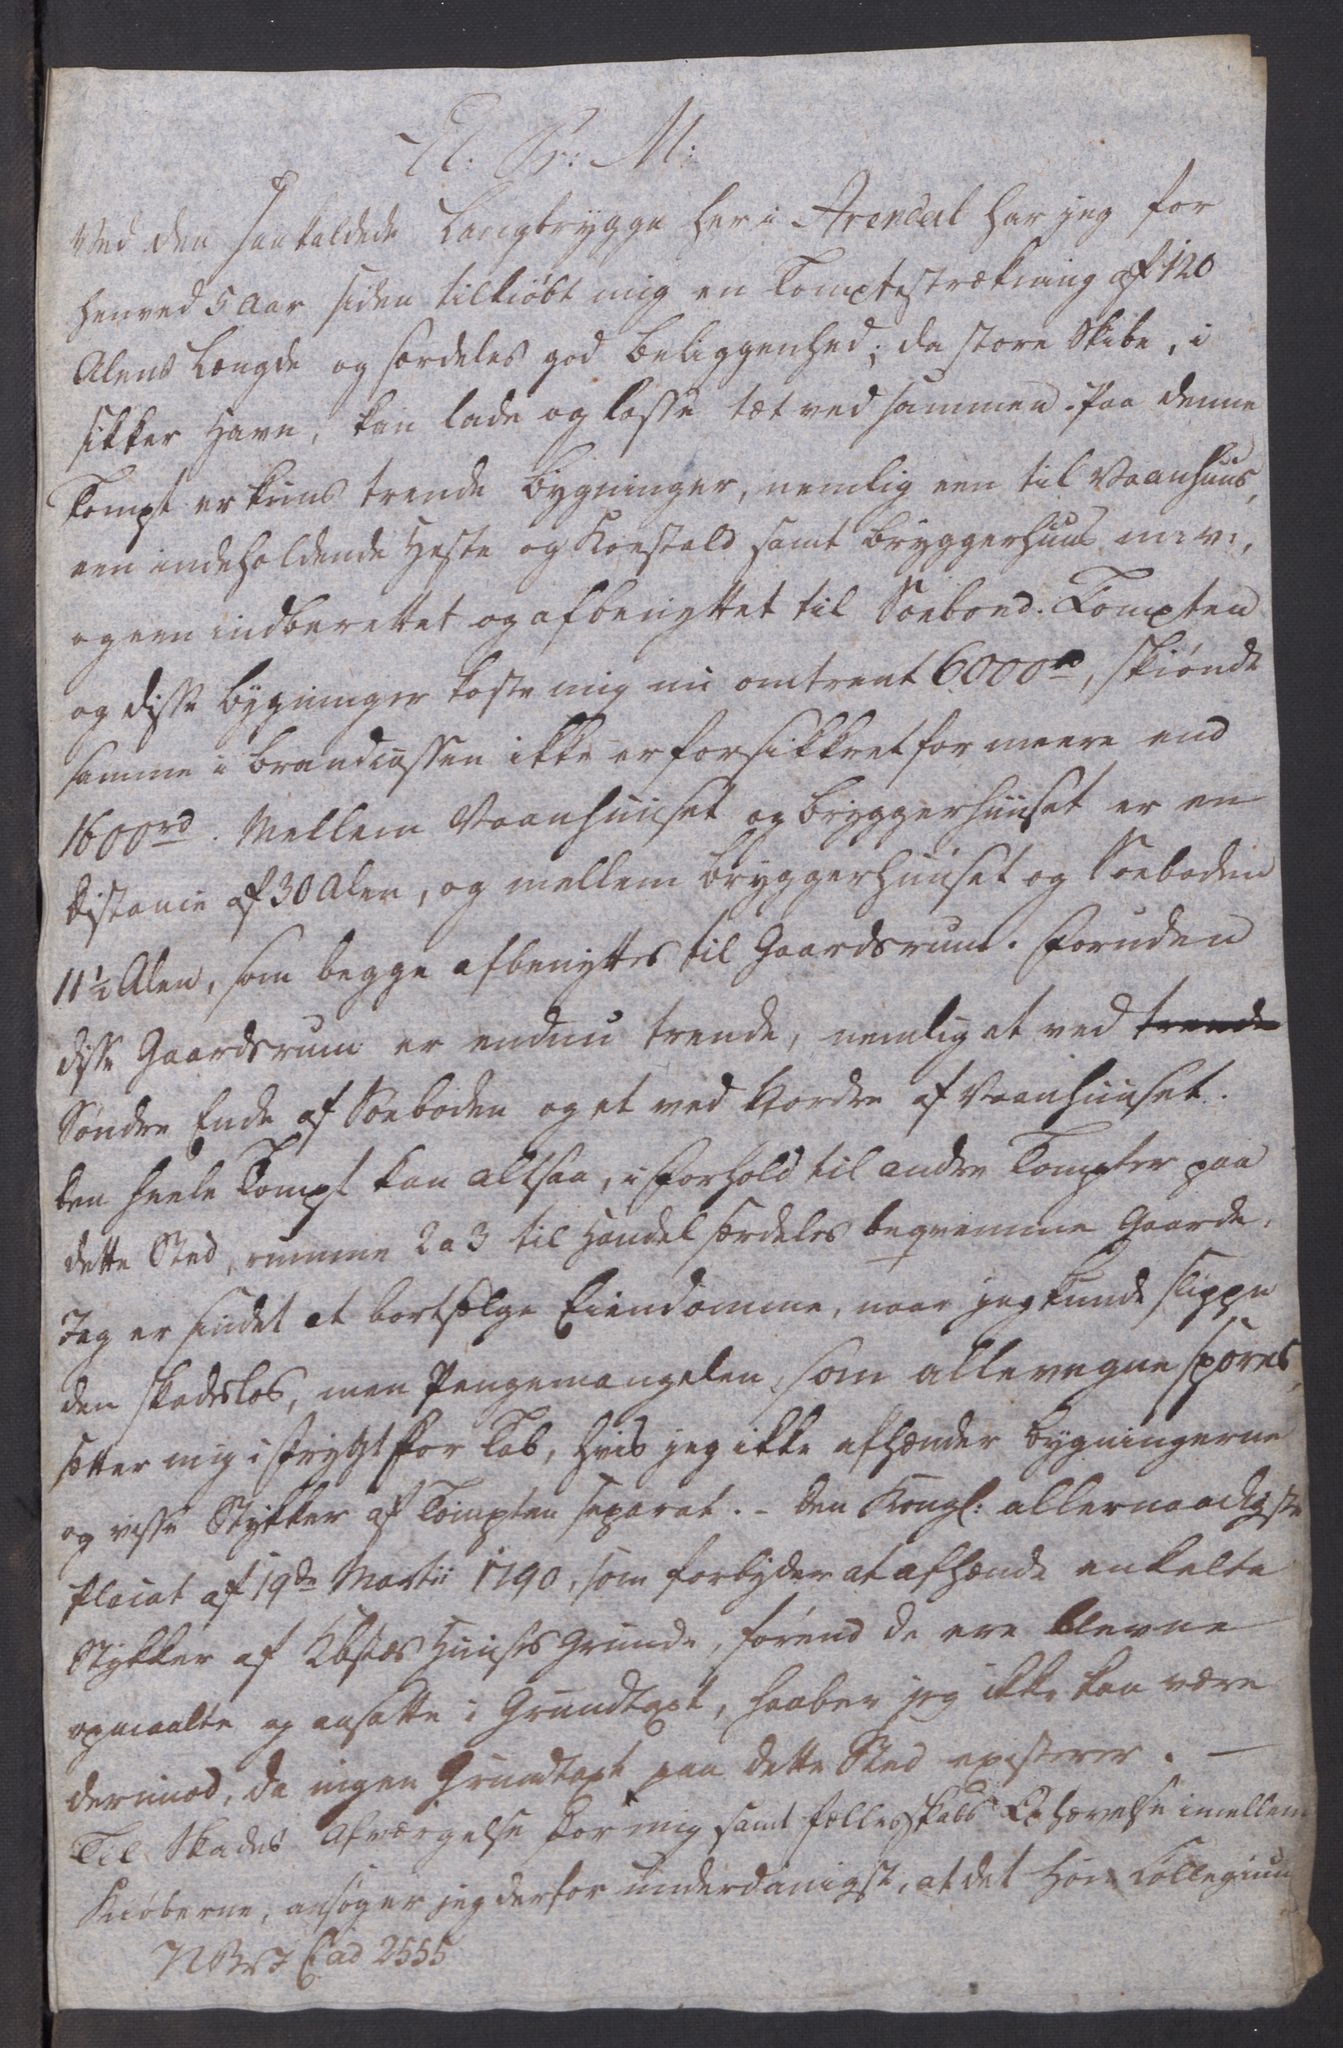 E. Pr: M:
Ved den saakaldede Langbrygge her i Arendal har jeg for
henved 5 Aar siden tilkiöbt mig en Tomptestrækning af 120
Alens Længde og særdeles god Beliggenhed; da store Skibe, i
sikker Havn, kan lade og losse tæt ved sammen. Paa denne
Tompt er kuns trende Bygninger, nemlig een til Vaanhuus,
een indeholdende Heste og Koestald samt Bryggerhuus m: v:,
og een indberettet og afbenyttet til Söebod. Tompten
og disse Bygninger koste mig nu omtrent 6000rd, skiönde
samme i Brandcassen ikke er forsikkret for meere end
1600rd. Mellem Vaanhuuset og Bryggerhuuset er en
Distance af 30 Alen, og mellem Bryggerhuuset og Söeboden
11½ Alen, som begge afbenyttes til Gaardsrum. Foruden
disse Gaardsrum er endnu trende, nemlig et ved trende
Söndre Ende af Söeboden og et ved Nordre af Vaanhuuset.
Den heele Tompt kan altsaa, i Forhold til andre Tompter paa
dette Sted, rumme 2 a 3 til Handel særdeles beqvemme Gaarde.
Jeg er sindet at bortsælge Eiendomme, naar jeg kunde slippe
den skadeslös, men Pengemangelen, som allevegne spores,
sætter mig i Frygt for Tab, hvis jeg ikke afhænder Bygningerne
og visse Stykker af Tompten separat. - Den Kongl: allernaadigste
Placat af 19de Martii 1790, som forbyder at afhænde enkelte
Stykker af Kbstæds Huuses Grunde, förend de ere blevne
opmaalte og ansatte i Grundtaxt, haaber jeg ikke kan være
derimod, da ingen Grundtaxt paa dette Sted existerer. -
Til Skades Afværgelse for mig samt Fællesskabs Ophævelse imellem
Kiöberne, ansöger jeg derfor underdanigst, at det Höie Collegium
Cad 2555